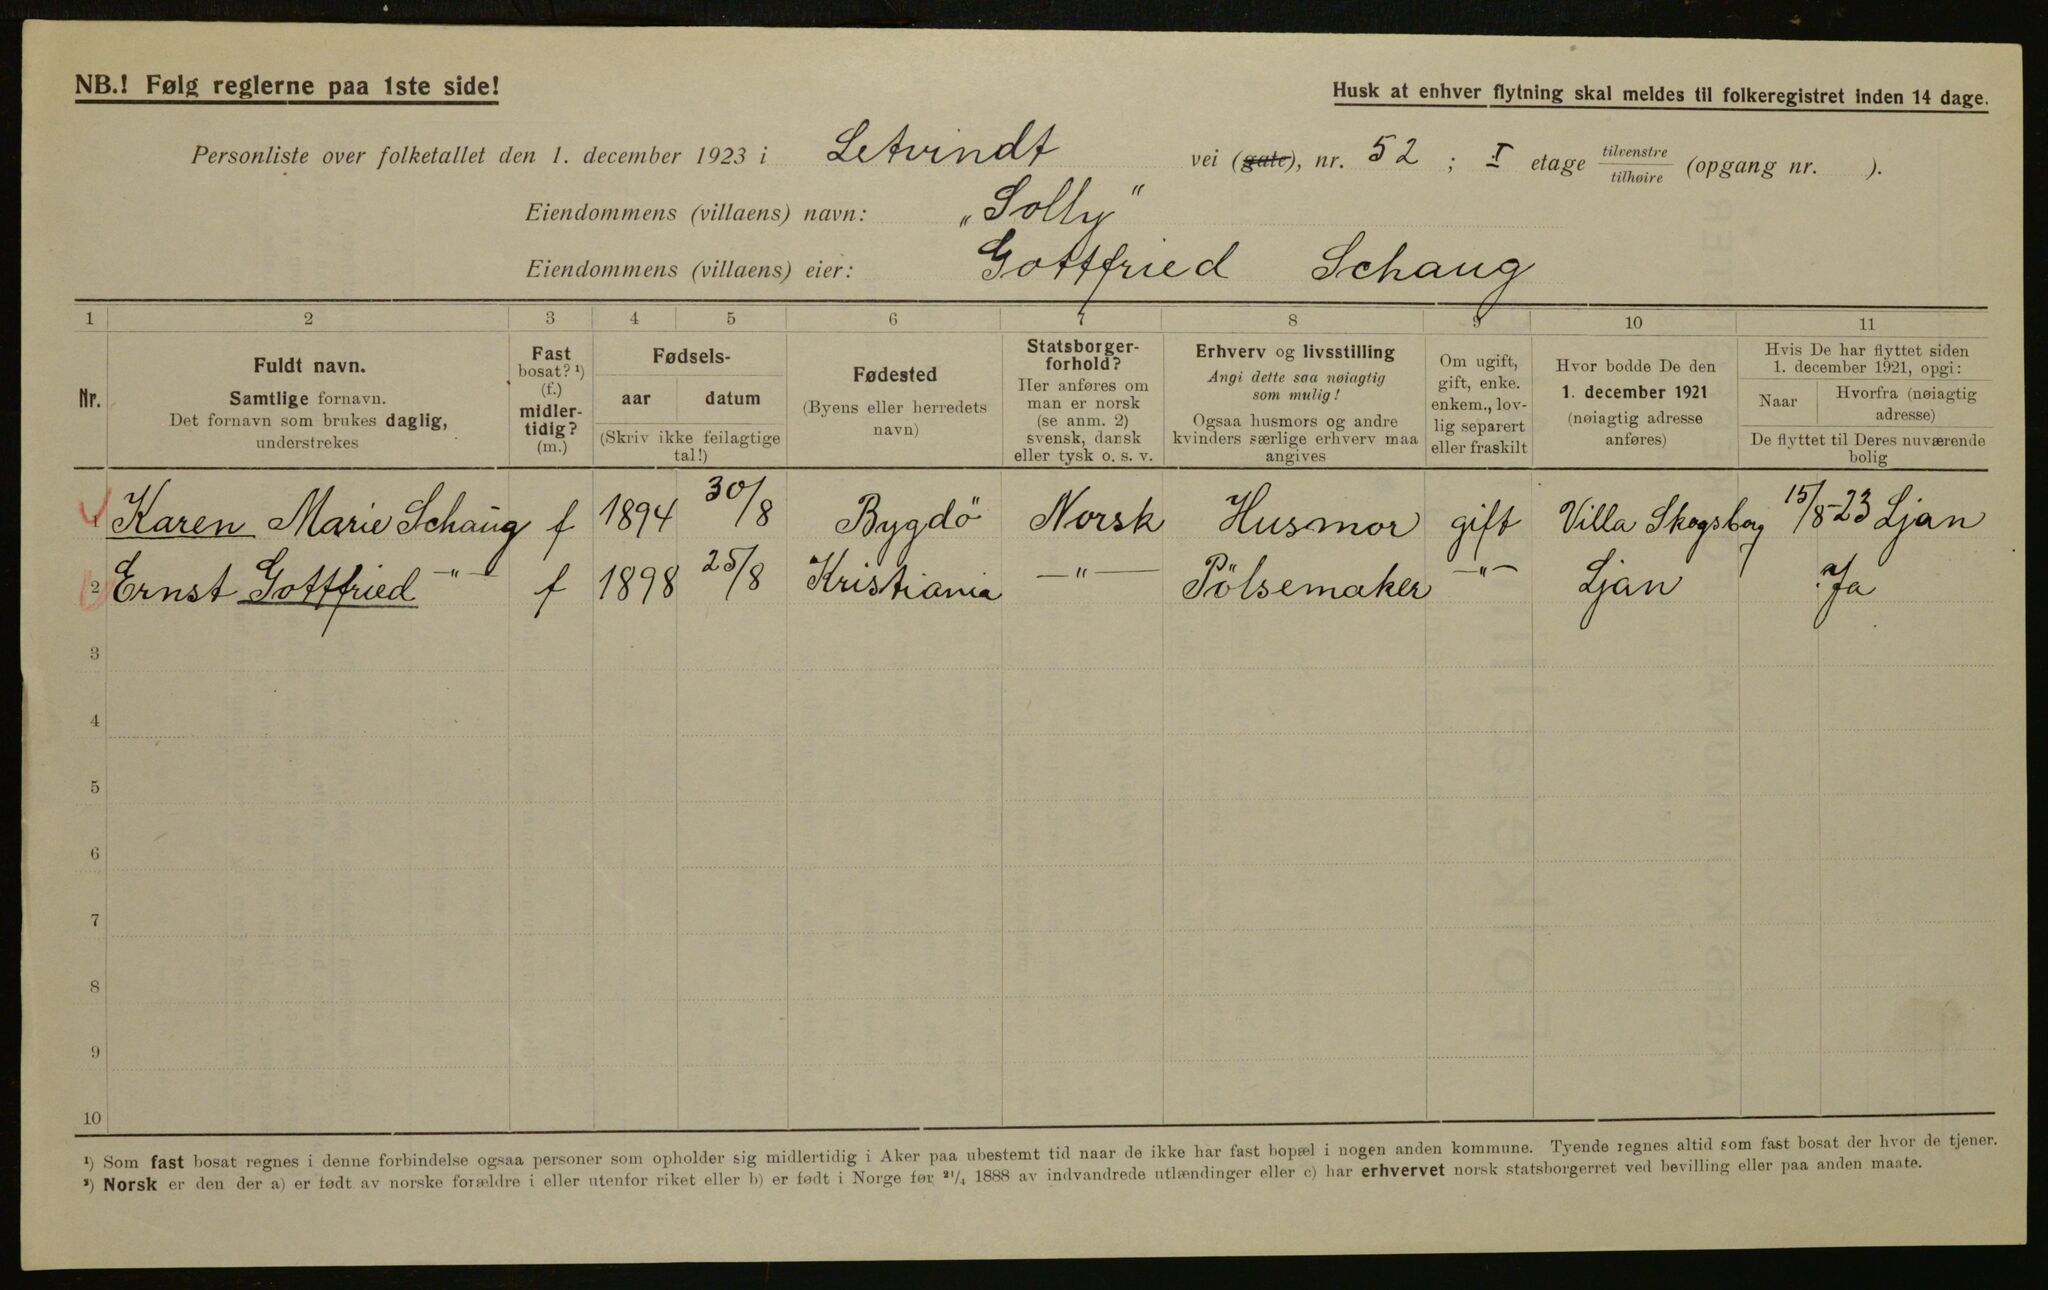 NB.! Følg reglerne paa 1ste side!
Husk at enhver flytning skal meldes til folkeregistret inden 14 dage.
Personliste over folketallet den 1. december 1923 i Letvindt vei (gate), nr. 52 ; I etage tilvenstre tilhøire (opgang nr. ).
Eiendommens (villaens) navn: „Solly"
Eiendommens (villaens) eier: Gottfried Schaug
1 2 3 4 5 6 7 8 9 10 11
Nr.
Fuldt navn.
Samtlige fornavn.
Det fornavn som brukes daglig,
understrekes
Fast
bosat? ¹)
(f.)
midler-
tidig?
(m.)
Fødsels-
aar datum
(Skriv ikke feilagtige
tal!)
Fødested
(Byens eller herredets
navn)
Statsborger-
forhold?
Her anføres om
man er norsk
(se anm. 2)
svensk, dansk
eller tysk o. s. v.
Erhverv og livsstilling
Angi dette saa nøiagtig
som mulig!
Ogsaa husmors og andre
kvinders særlige erhverv maa
angives
Om ugift,
gift, enke.
enkem., lov-
lig separert
eller fraskilt
Hvor bodde De den
1. december 1921
(nøiagtig adresse
anføres)
Hvis De har flyttet siden
1. december 1921, opgi:
Naar
Hvorfra (nøiagtig
adresse)
De flyttet til Deres nuværende
bolig
1 Karen Marie Schaug f 1894 30/8 Bygdö Norsk Husmor gift Villa Skogsborg 15/8-23 Ljan
2 Ernst Gottfried -"- f 1898 25/8 Kristiania -"- Pölsemaker -"- Ljan Ja
3
4
5
6
7
8
9
10
¹) Som fast bosat regnes i denne forbindelse ogsaa personer som opholder sig midlertidig i Aker paa ubestemt tid naar de ikke har fast bopæl i nogen anden kommune. Tyende regnes altid som fast bosat der hvor de tjener.
²) Norsk er den der a) er født av norske forældre i eller utenfor riket eller b) er født i Norge før ²¹/₄ 1888 av indvandrede utlændinger eller c) har erhvervet norsk statsborgerret ved bevilling eller paa anden maate.